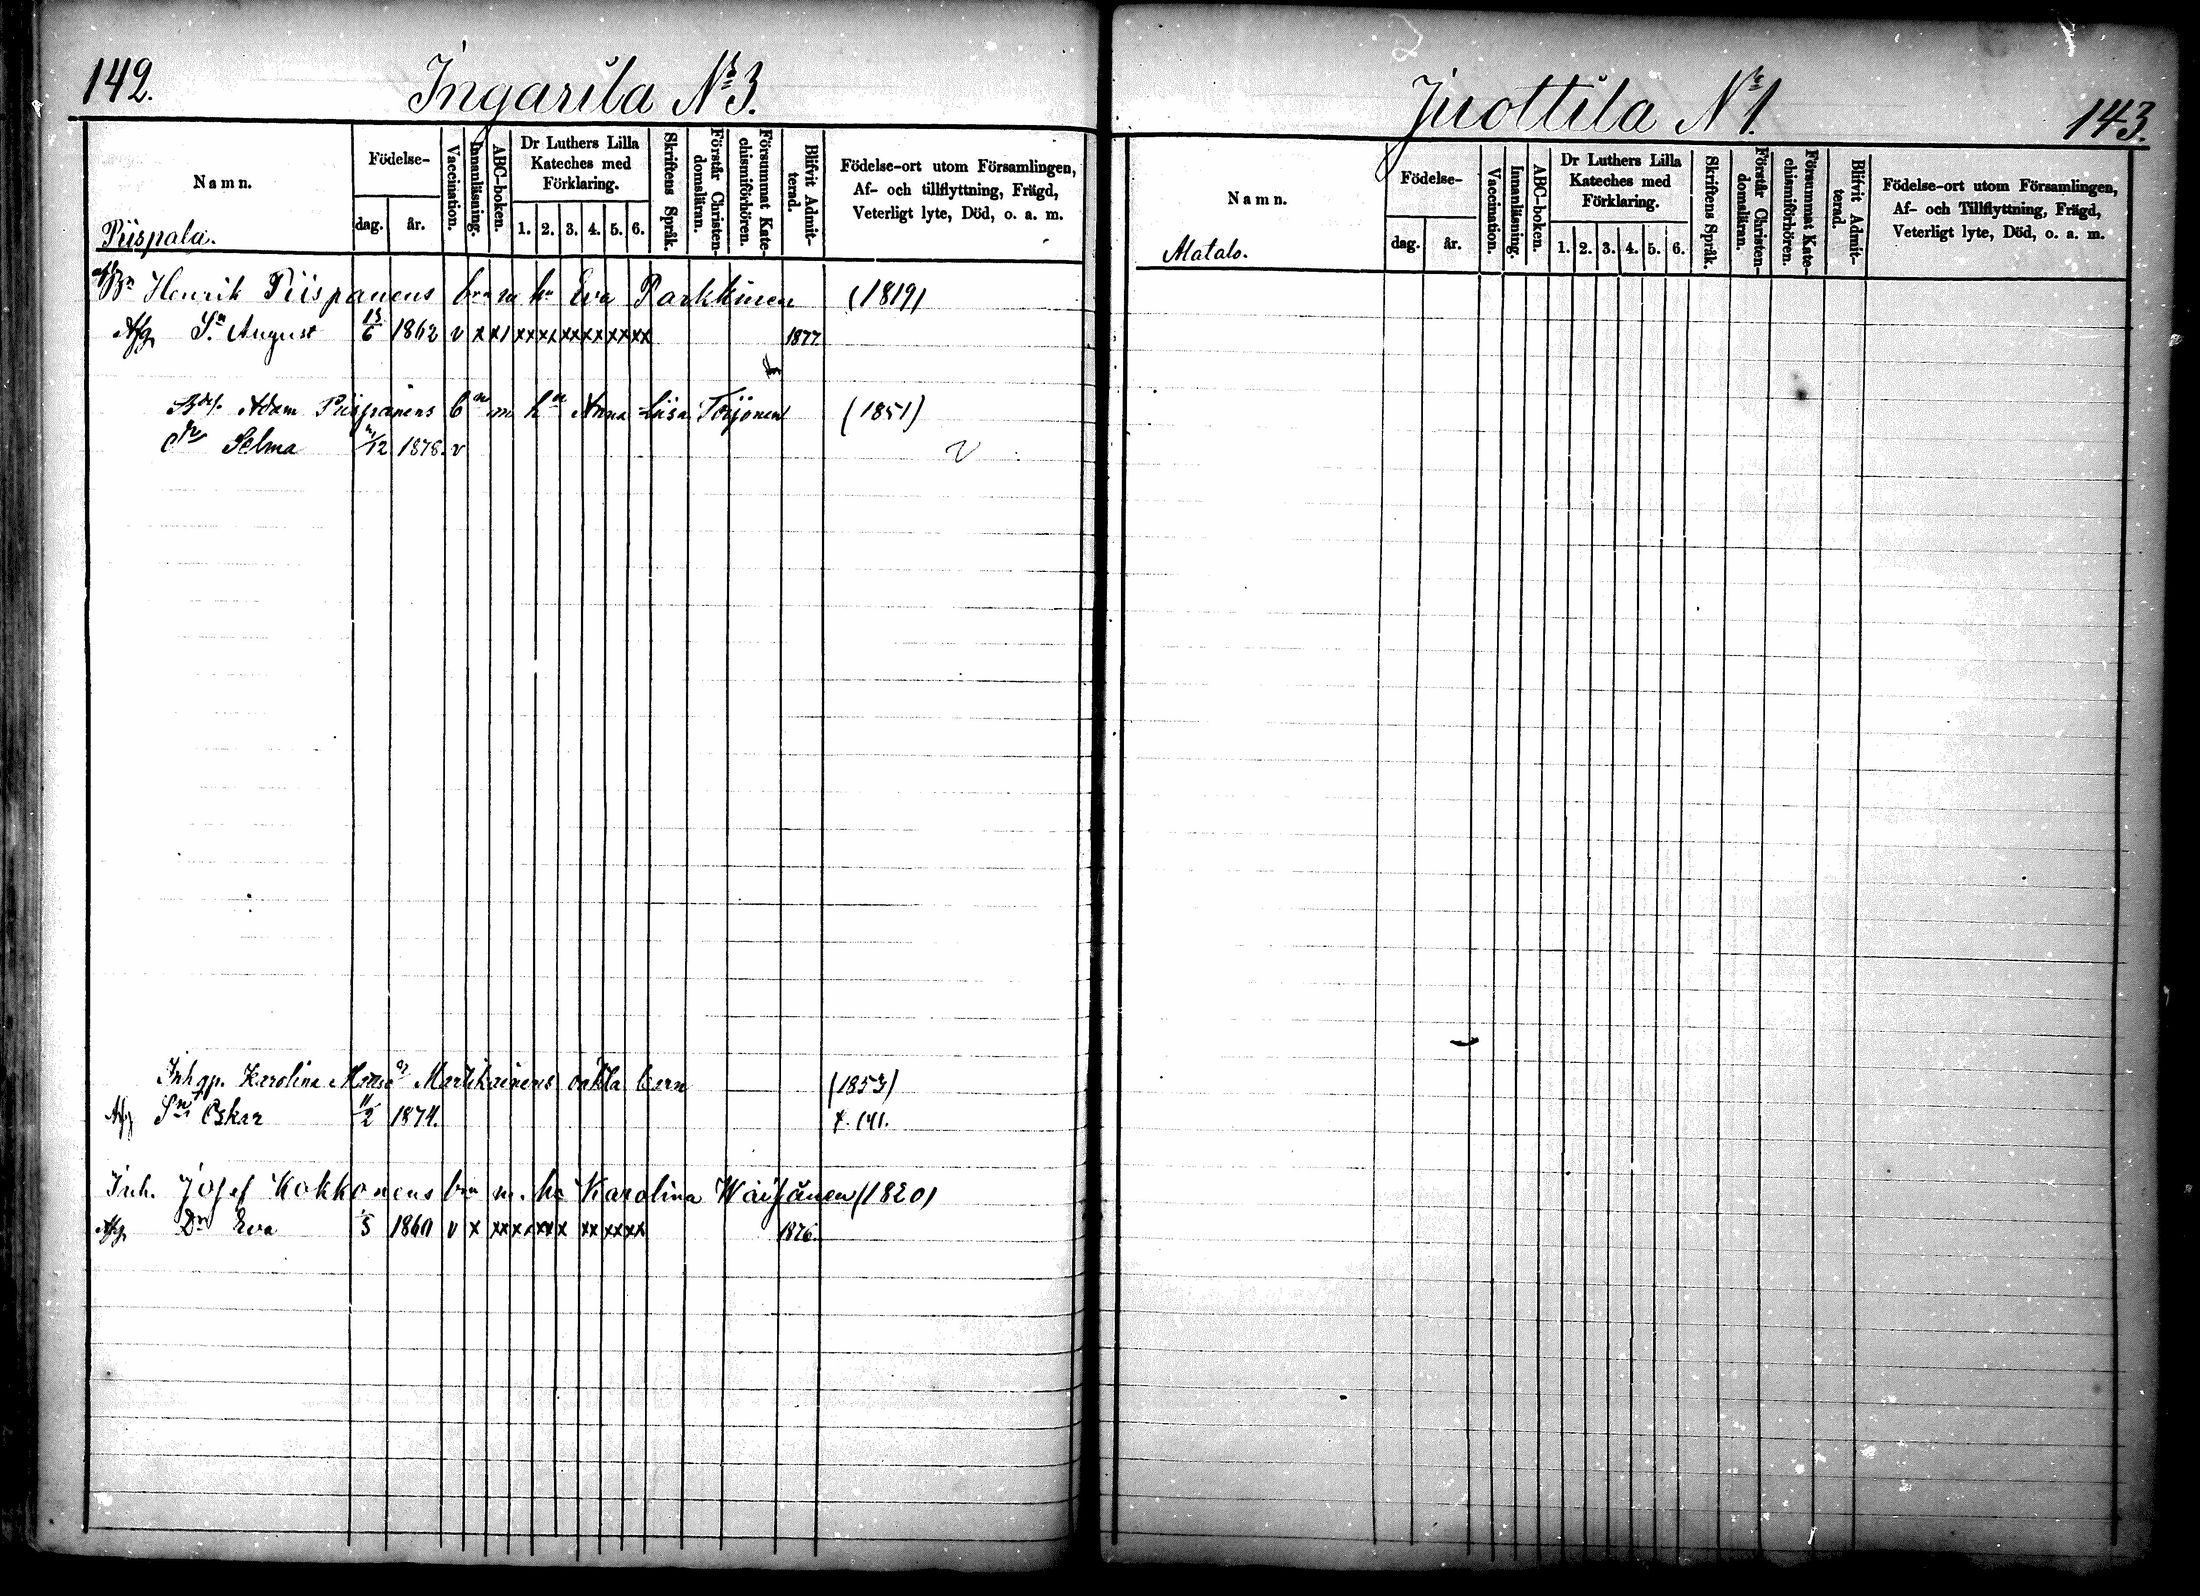 142.
Ingarila № 3.
Namn.
Födelse-
dag.
år.
Vaccination.
Innanläsning.
ABC-boken.
Dr Luthers Lilla
Kateches med
Förklaring.
1. 2. 3. 4. 5. 6.
Skriftens Språk.
Förstår Christen-
domsläran.
Försummat Kate-
chismiförhören.
Blifvit Admit-
terad.
Födelse-ort utom Församlingen,
Af- och tillflyttning, Frägd,
Veterligt lyte, Död, o. a. m.
Piispala.
Henrik Piispanens brn m hu Eva Parkkinen (1819)
Afg. Sn August 13/6 1862 v x x1 xx xx xx xx xx xx 1877
Adam Piispanens bn m hu Anna Liisa Torjonen (1851)
Dr Selma /12 1878. v
Inh. qp. Karolina Martikainens oäkta barn (1853)
Afg Sn Oskar 11/2 1874. f. 141.
Inh. Josef Kokkonens brn m. hu Karolina Waisänen (1820)
Afg. Dr Eva /3 1860 v x xx xx xx x xx xx xx 1876.
Juottila № 1.
143.
Namn.
Födelse-
dag.
år.
Vaccination.
Innanläsning.
ABC-boken.
Dr Luthers Lilla
Kateches med
Förklaring.
1. 2. 3. 4. 5. 6.
Skriftens Språk.
Förstår Christen-
domsläran.
Försummat Kate-
chismiförhören.
Blifvit Admit-
terad.
Födelse-ort utom Församlingen,
Af- och Tillflyttning, Frägd,
Veterligt lyte, Död, o. a. m.
Matalo.